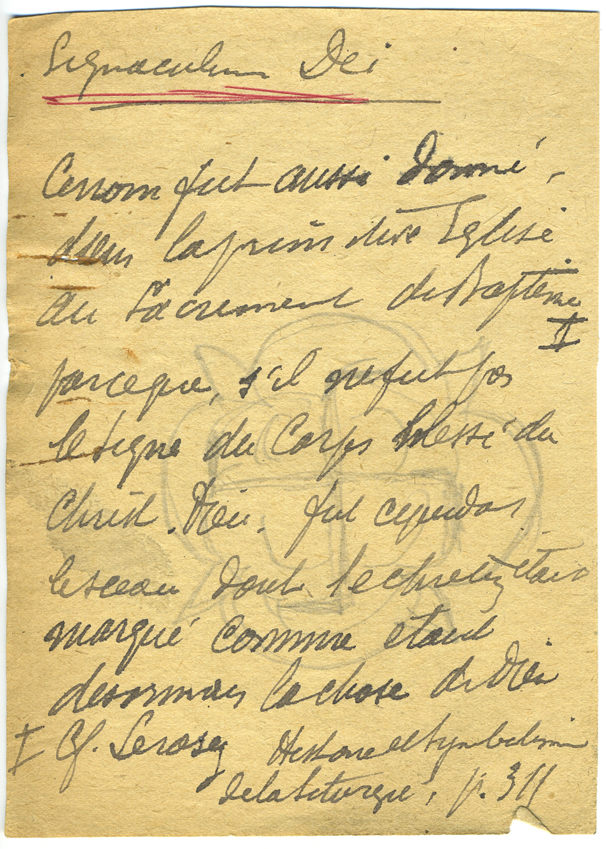 Signaculum Dei
Ce nom fut aussi donné,
dans la primitive Eglise
au Sacrement de Baptême
I
parceque, s'il ne fut pas
le signe du Corps blessé du
Christ-Dieu, fut cependant
le sceau dont le chretien était
marqué comme etant
desormais la chose de Dieu
I Cf. Lerosey Histoire et Symbolisme
de la Liturgie, p. 311